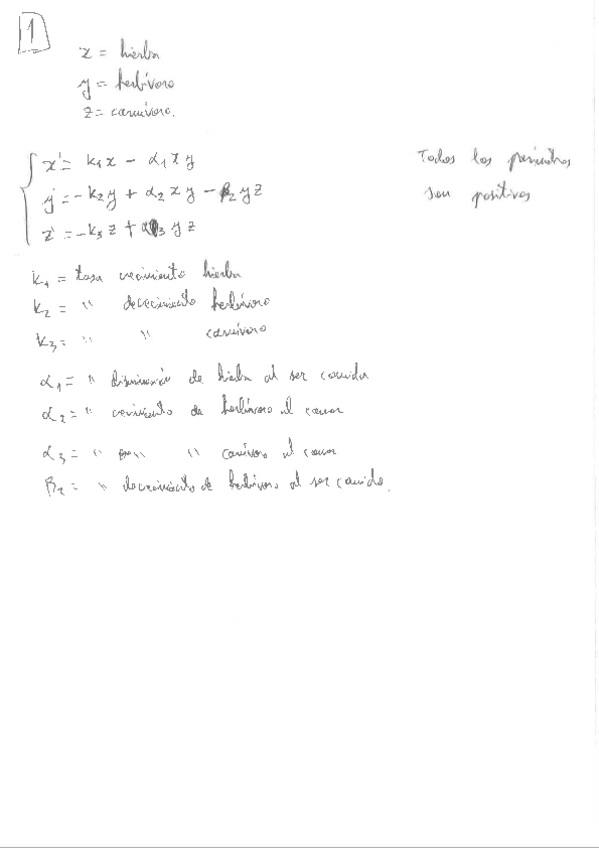 1
x = hierba
y = herbívoro
z = carnívoro.
x' = k₁x - α₁xy
Todos los parámetros
y' = -k₂y + α₂xy - β₂yz
son positivos
z' = -k₃z + α₃yz
k₁ = tasa crecimiento hierba
k₂ = " decrecimiento herbívoro
k₃ = " " carnívoro
α₁ = " disminución de hierba al ser comida
α₂ = " crecimiento de herbívoro al comer
α₃ = " " " carnívoro al comer
β₂ = " decrecimiento de herbívoro al ser comido.